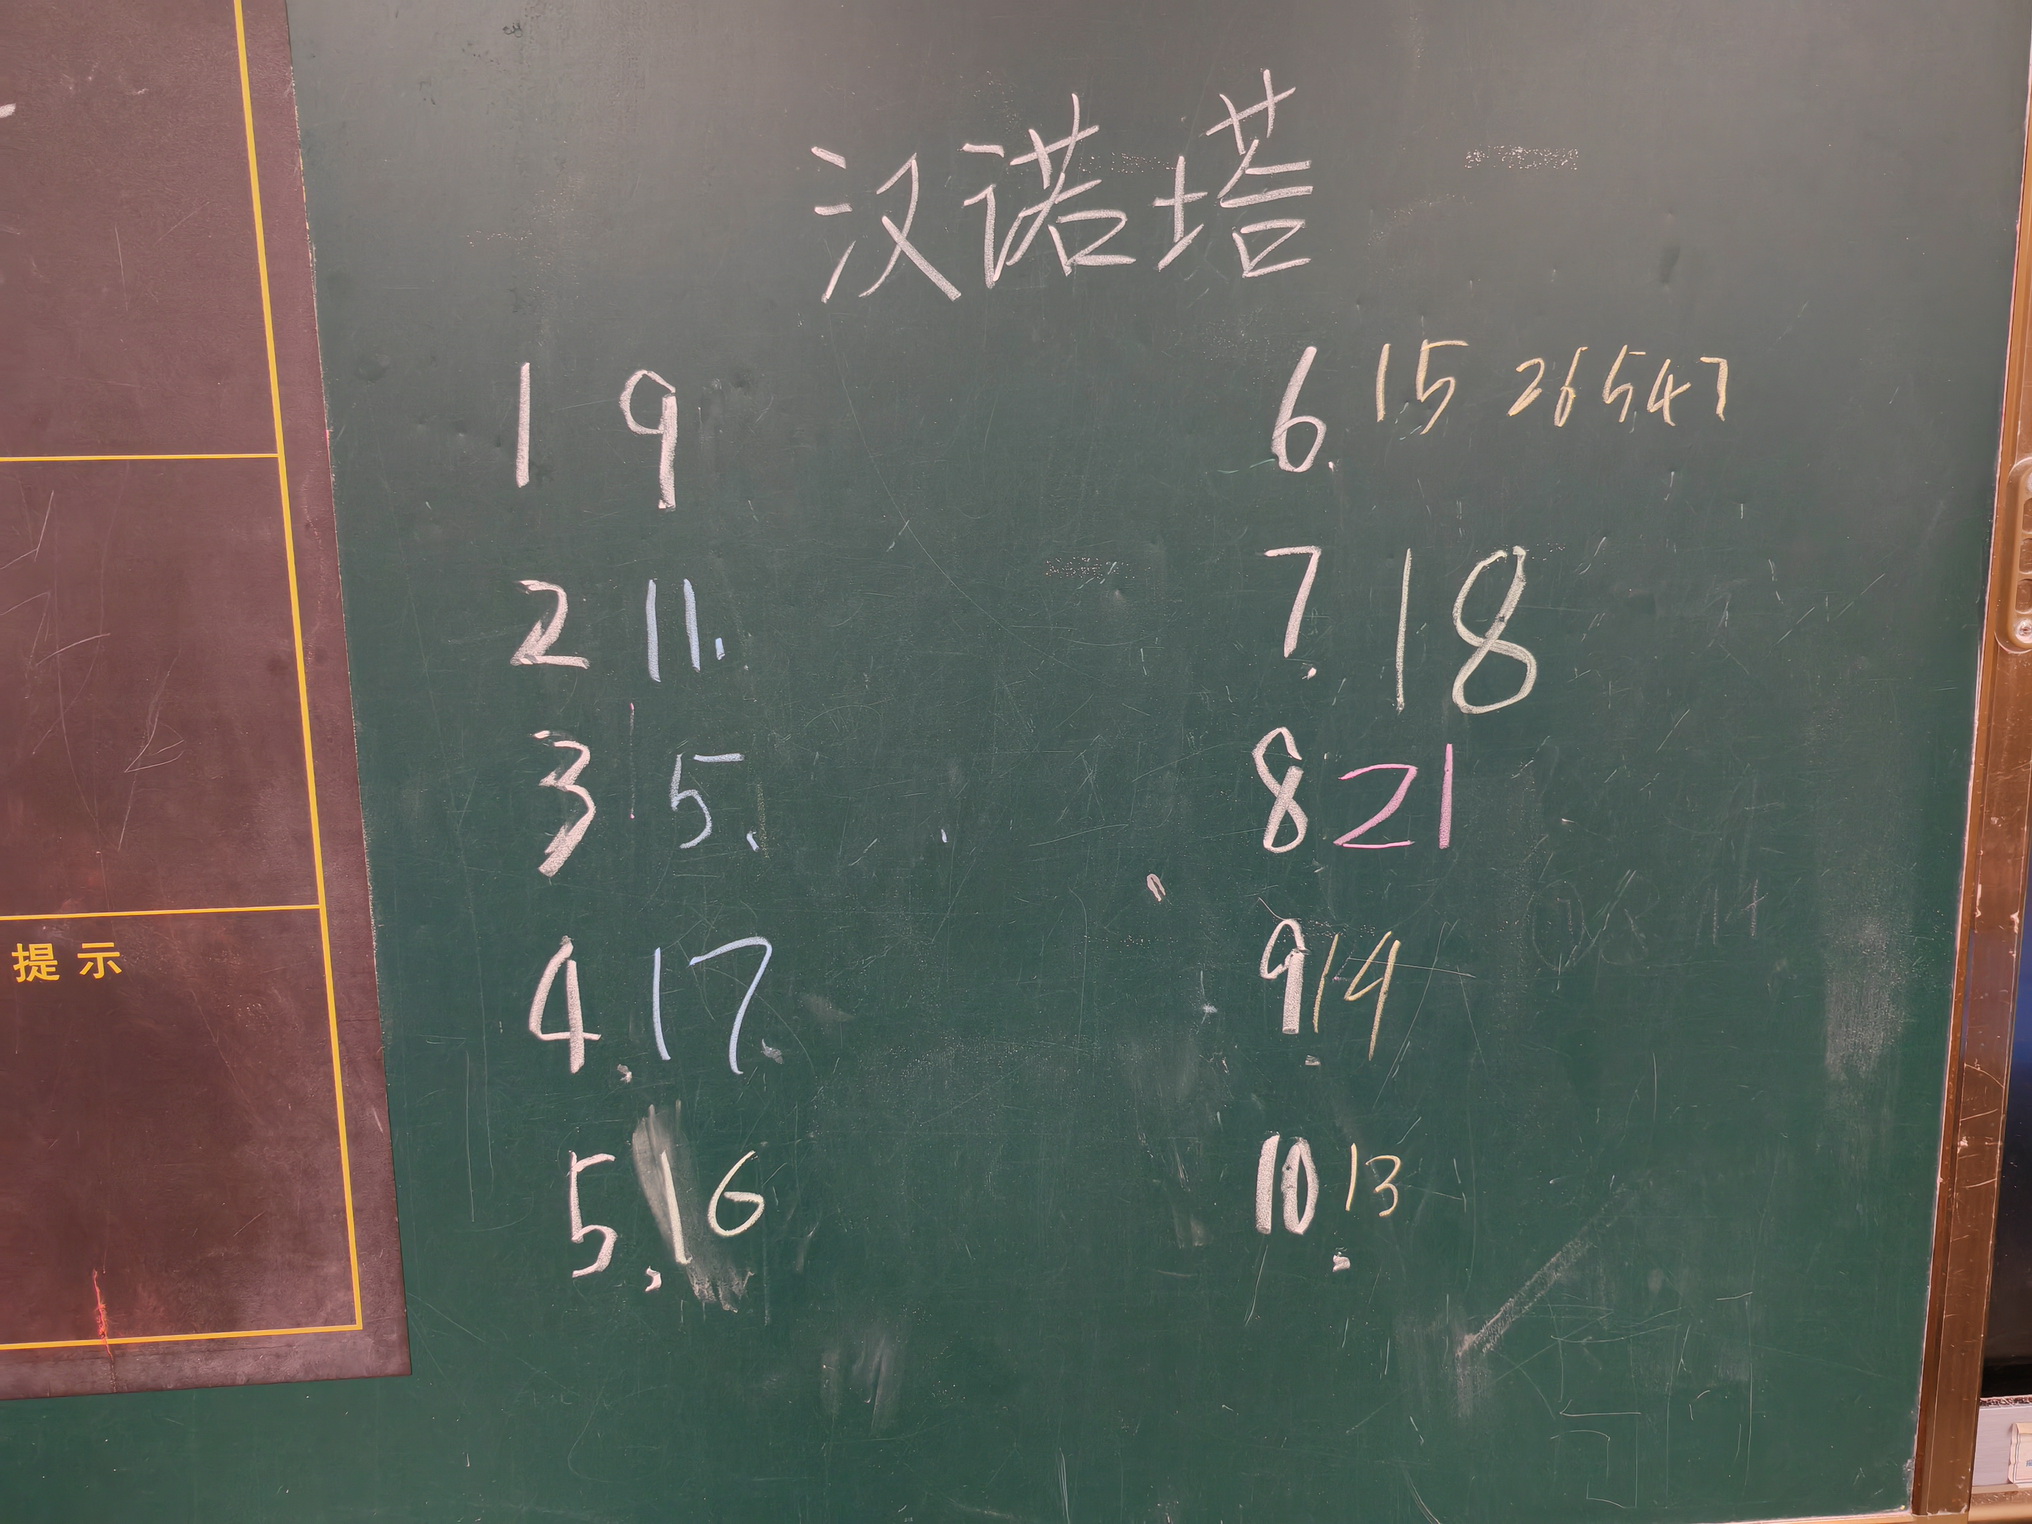 汉诺塔
1 9
2 11.
3 5.
4. 17
5. 16
6. 15 26547
7. 18
8 21
9. 14
10. 13
提示